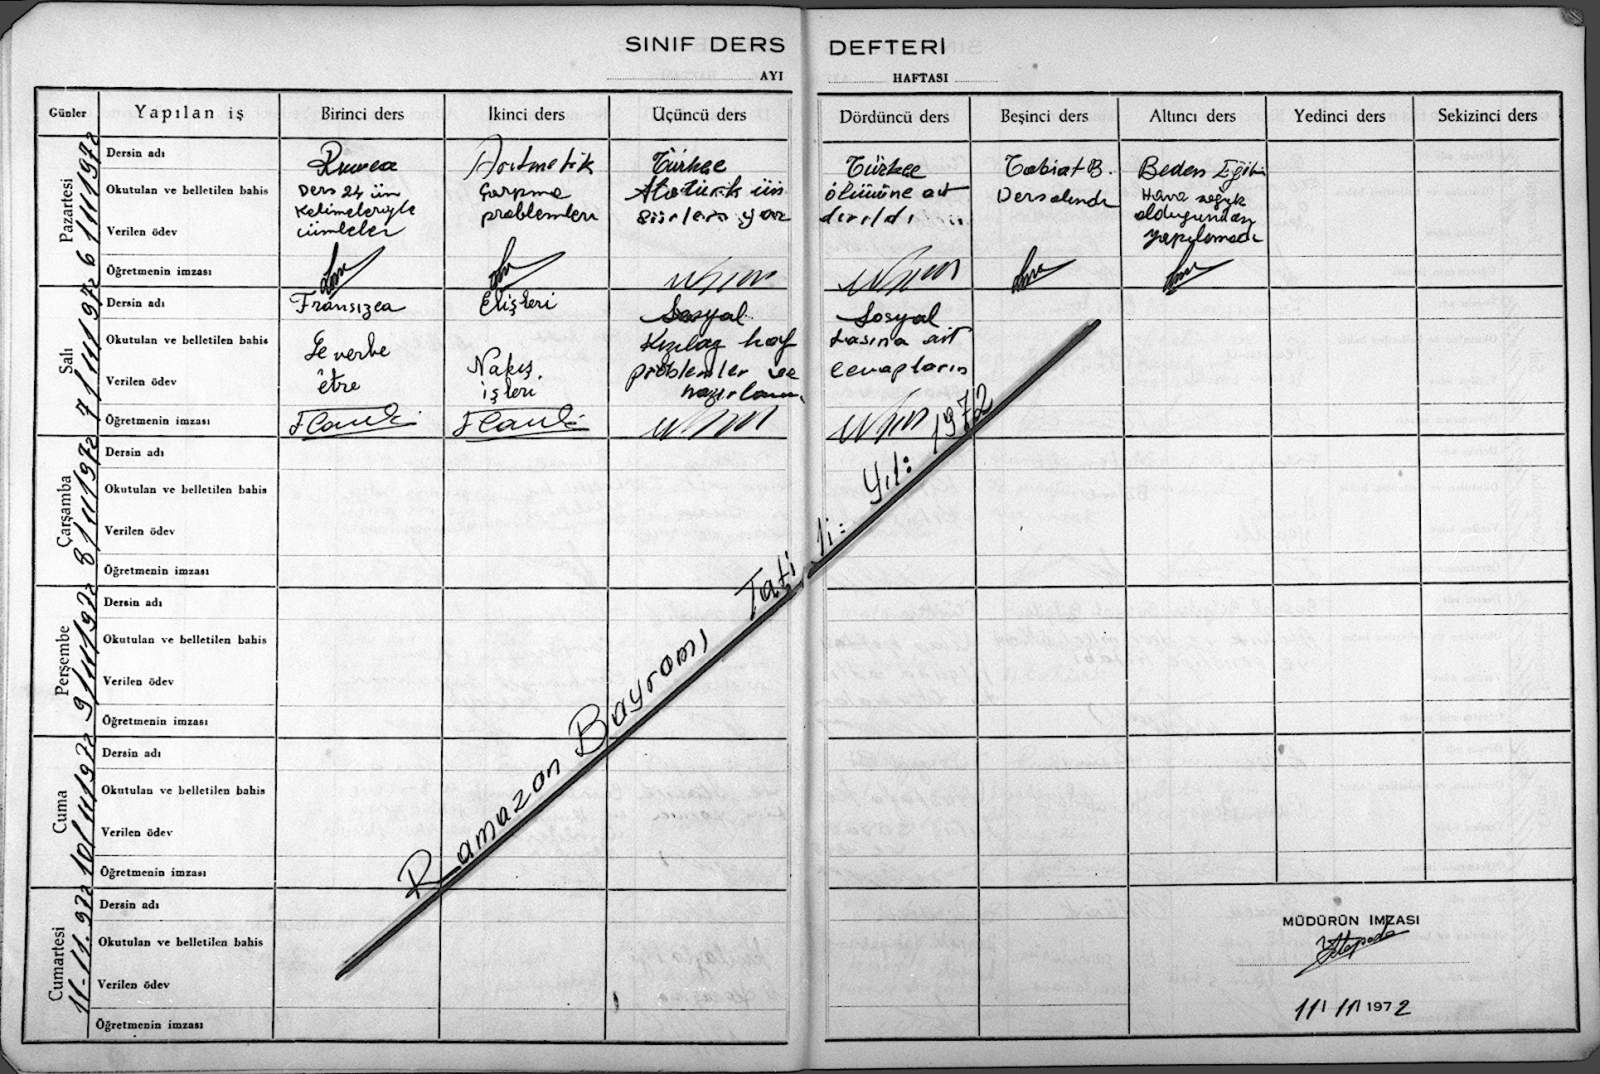 SINIF DERS DEFTERİ
AYI HAFTASI
Günler Yapılan iş Birinci ders İkinci ders Üçüncü ders Dördüncü ders Beşinci ders Altıncı ders Yedinci ders Sekizinci ders
Pazartesi
6/11/1972
Dersin adı Rumca Aritmetik Türkçe Türkçe Tabiat B. Beden Eğitim
Okutulan ve belletilen bahis
Verilen ödev
Ders 24 ün
kelimeleriyle
cümleler
Çarpma
problemleri
Atatürk ün
şiirleri yaz
ölümüne ait
dırıldı
Ders alındı
Hava soğuk
olduğundan
yapılamadı
Öğretmenin imzası
Salı
7/11/1972
Dersin adı Fransızca Elişleri Sosyal Sosyal
Okutulan ve belletilen bahis
Verilen ödev
Le verbe
être
Nakış
işleri
Kızılay haf
problemler ve
tasına ait
cevapların
Öğretmenin imzası
Çarşamba
8/11/1972
Dersin adı
Okutulan ve belletilen bahis
Verilen ödev
Öğretmenin imzası
Perşembe
9/11/1972
Dersin adı
Okutulan ve belletilen bahis
Verilen ödev
Öğretmenin imzası
Cuma
10/11/1972
Dersin adı
Okutulan ve belletilen bahis
Verilen ödev
Öğretmenin imzası
Cumartesi
11-11-972
Dersin adı
Okutulan ve belletilen bahis
Verilen ödev
Öğretmenin imzası
Ramazan Bayramı Tatili: Yıl: 1972
MÜDÜRÜN İMZASI
11/11/1972